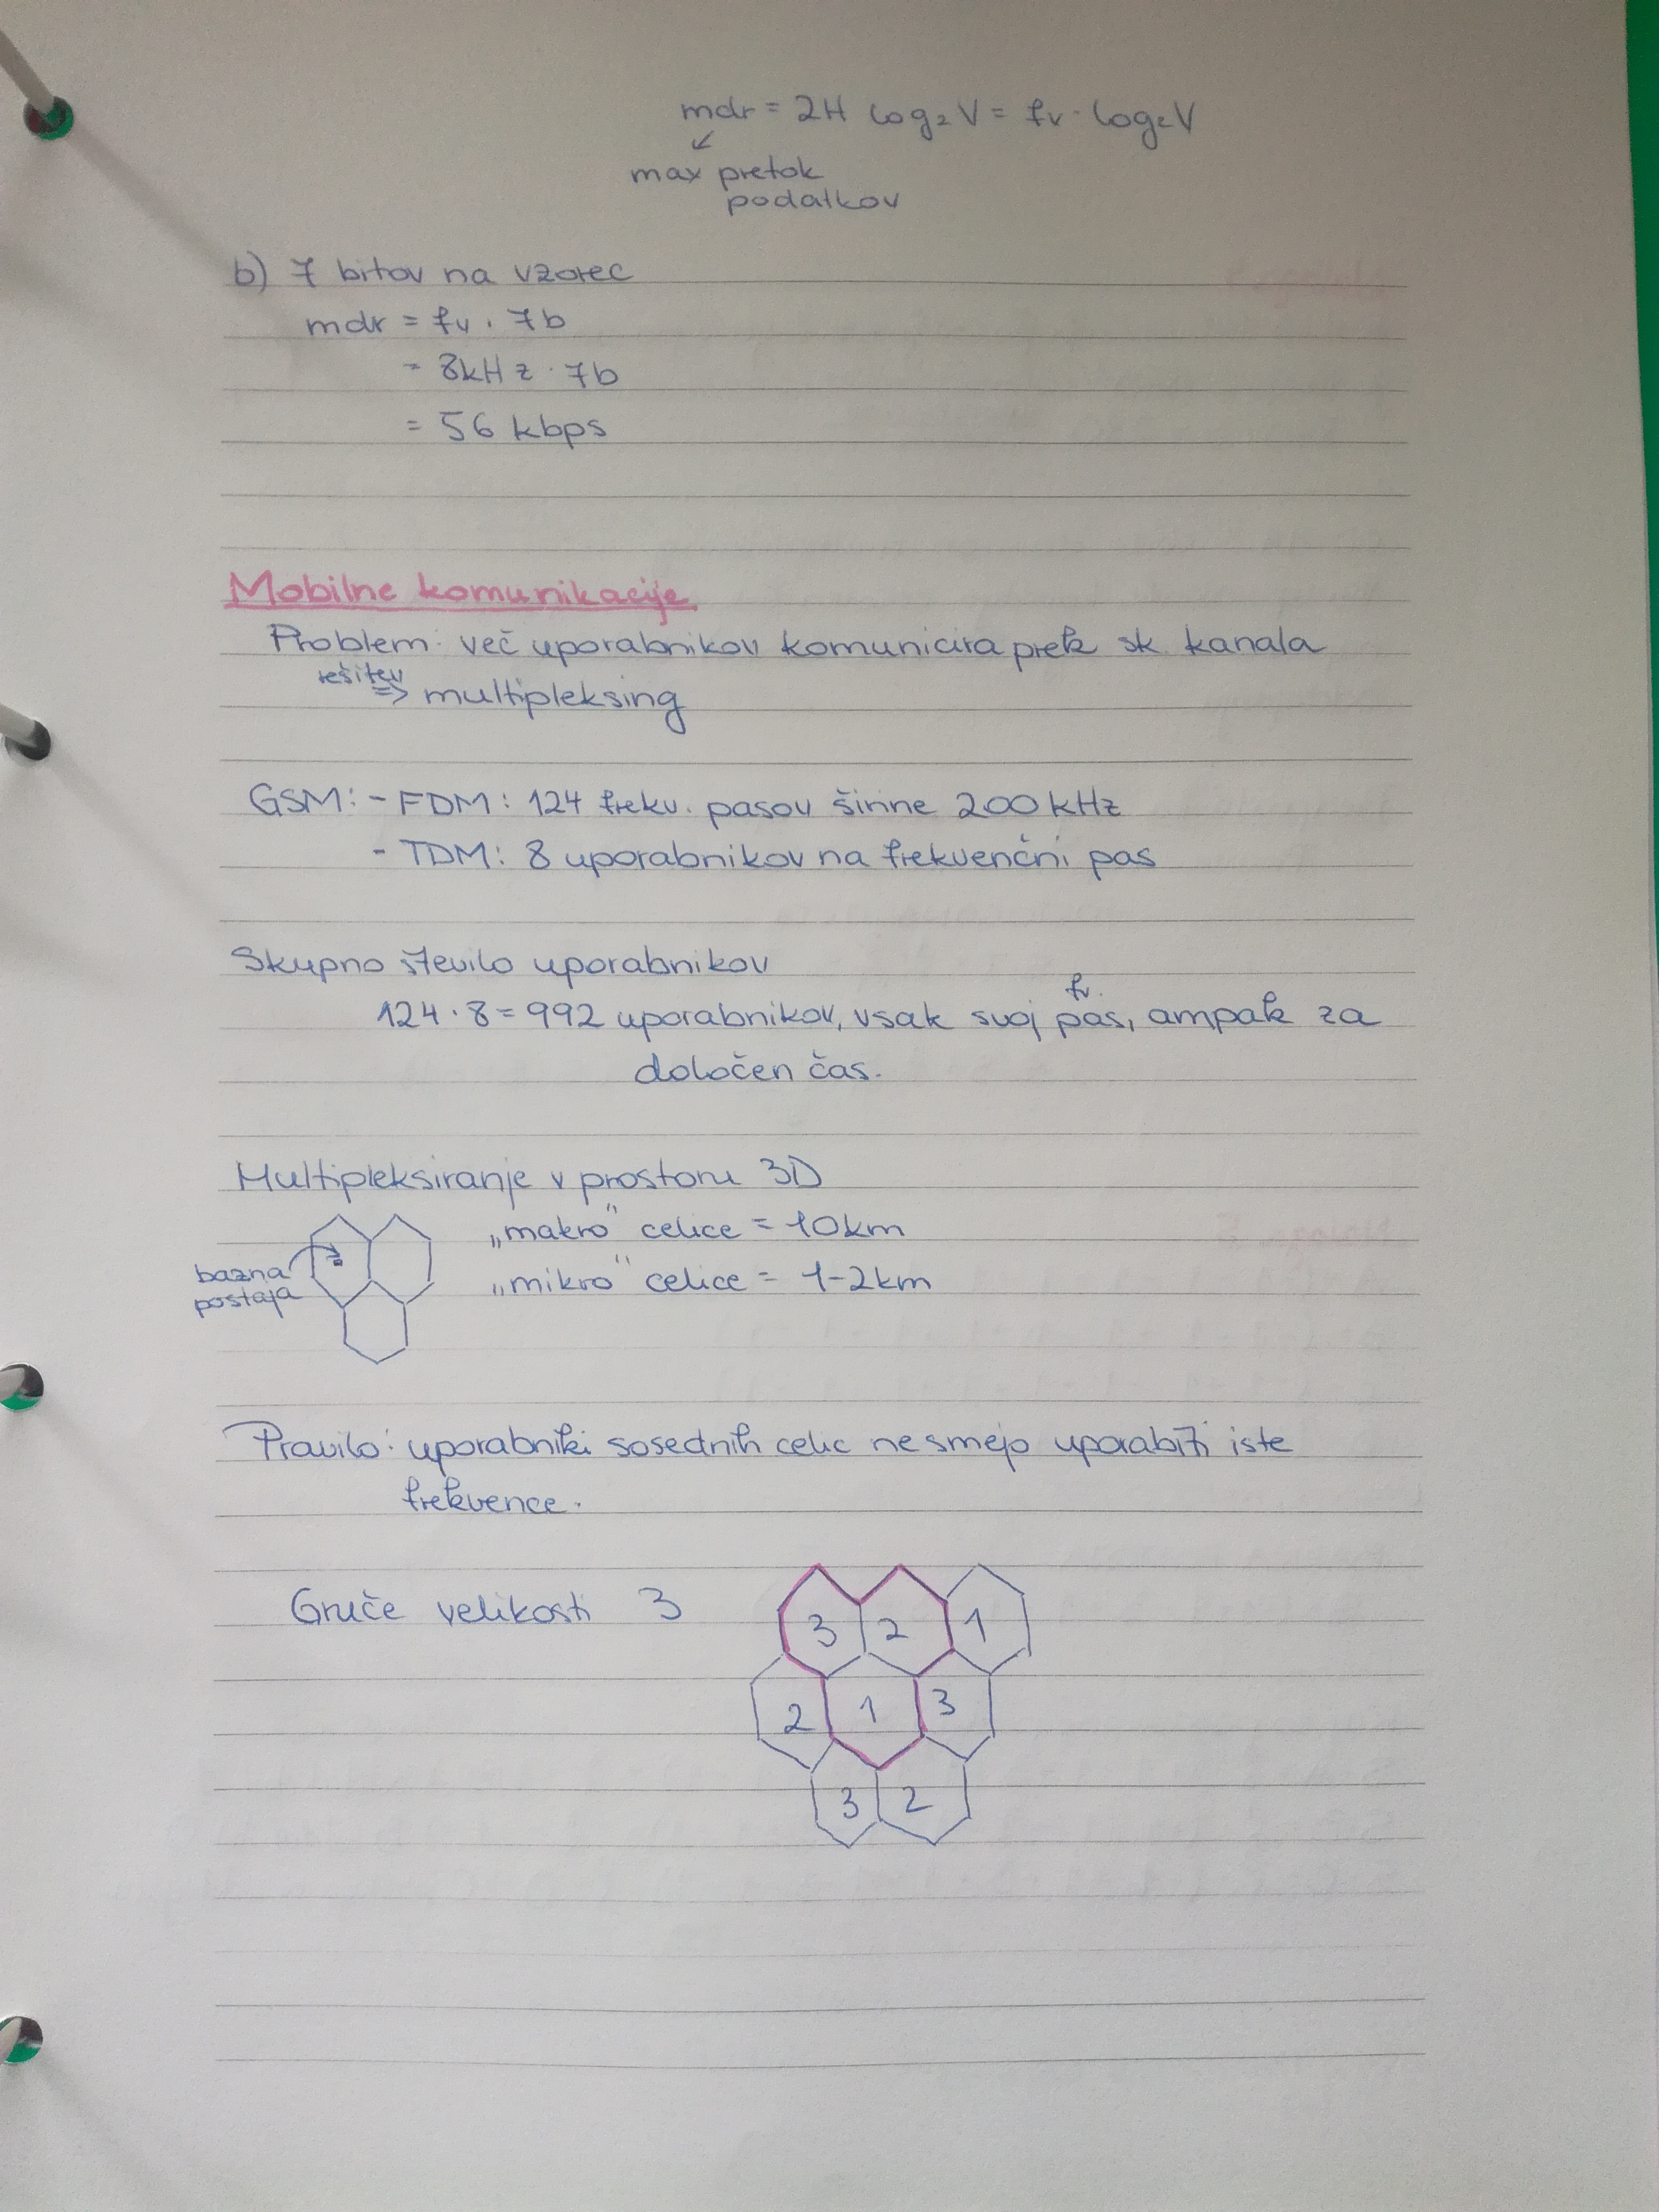 mdr = 2H log₂ V = fv · log₂ V
↙
max pretok
podatkov
b) 7 bitov na vzorec
mdr = fv · 7b
= 8kHz · 7b
= 56 kbps
Mobilne komunikacije
Problem: več uporabnikov komunicira prek sk. kanala
rešitev
⇒ multipleksing
GSM: - FDM: 124 frekv. pasov širine 200 kHz
- TDM: 8 uporabnikov na frekvenčni pas
Skupno število uporabnikov
fr.
124 · 8 = 992 uporabnikov, vsak svoj pas, ampak za
določen čas.
Multipleksiranje v prostoru 3D
„makro" celice = 10km
bazna
postaja
„mikro" celice = 1-2km
Pravilo: uporabniki sosednih celic ne smejo uporabiti iste
frekvence.
Gruče velikosti 3
3 2 1
2 1 3
3 2